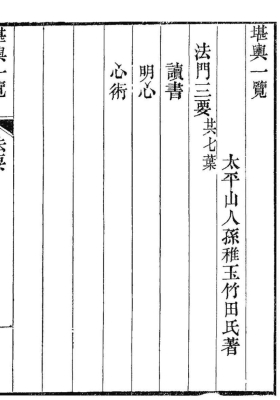 堪輿一覽
太平山人孫稚玉竹田氏著
法門三要其七葉
讀書
明心
心術
堪輿一覽